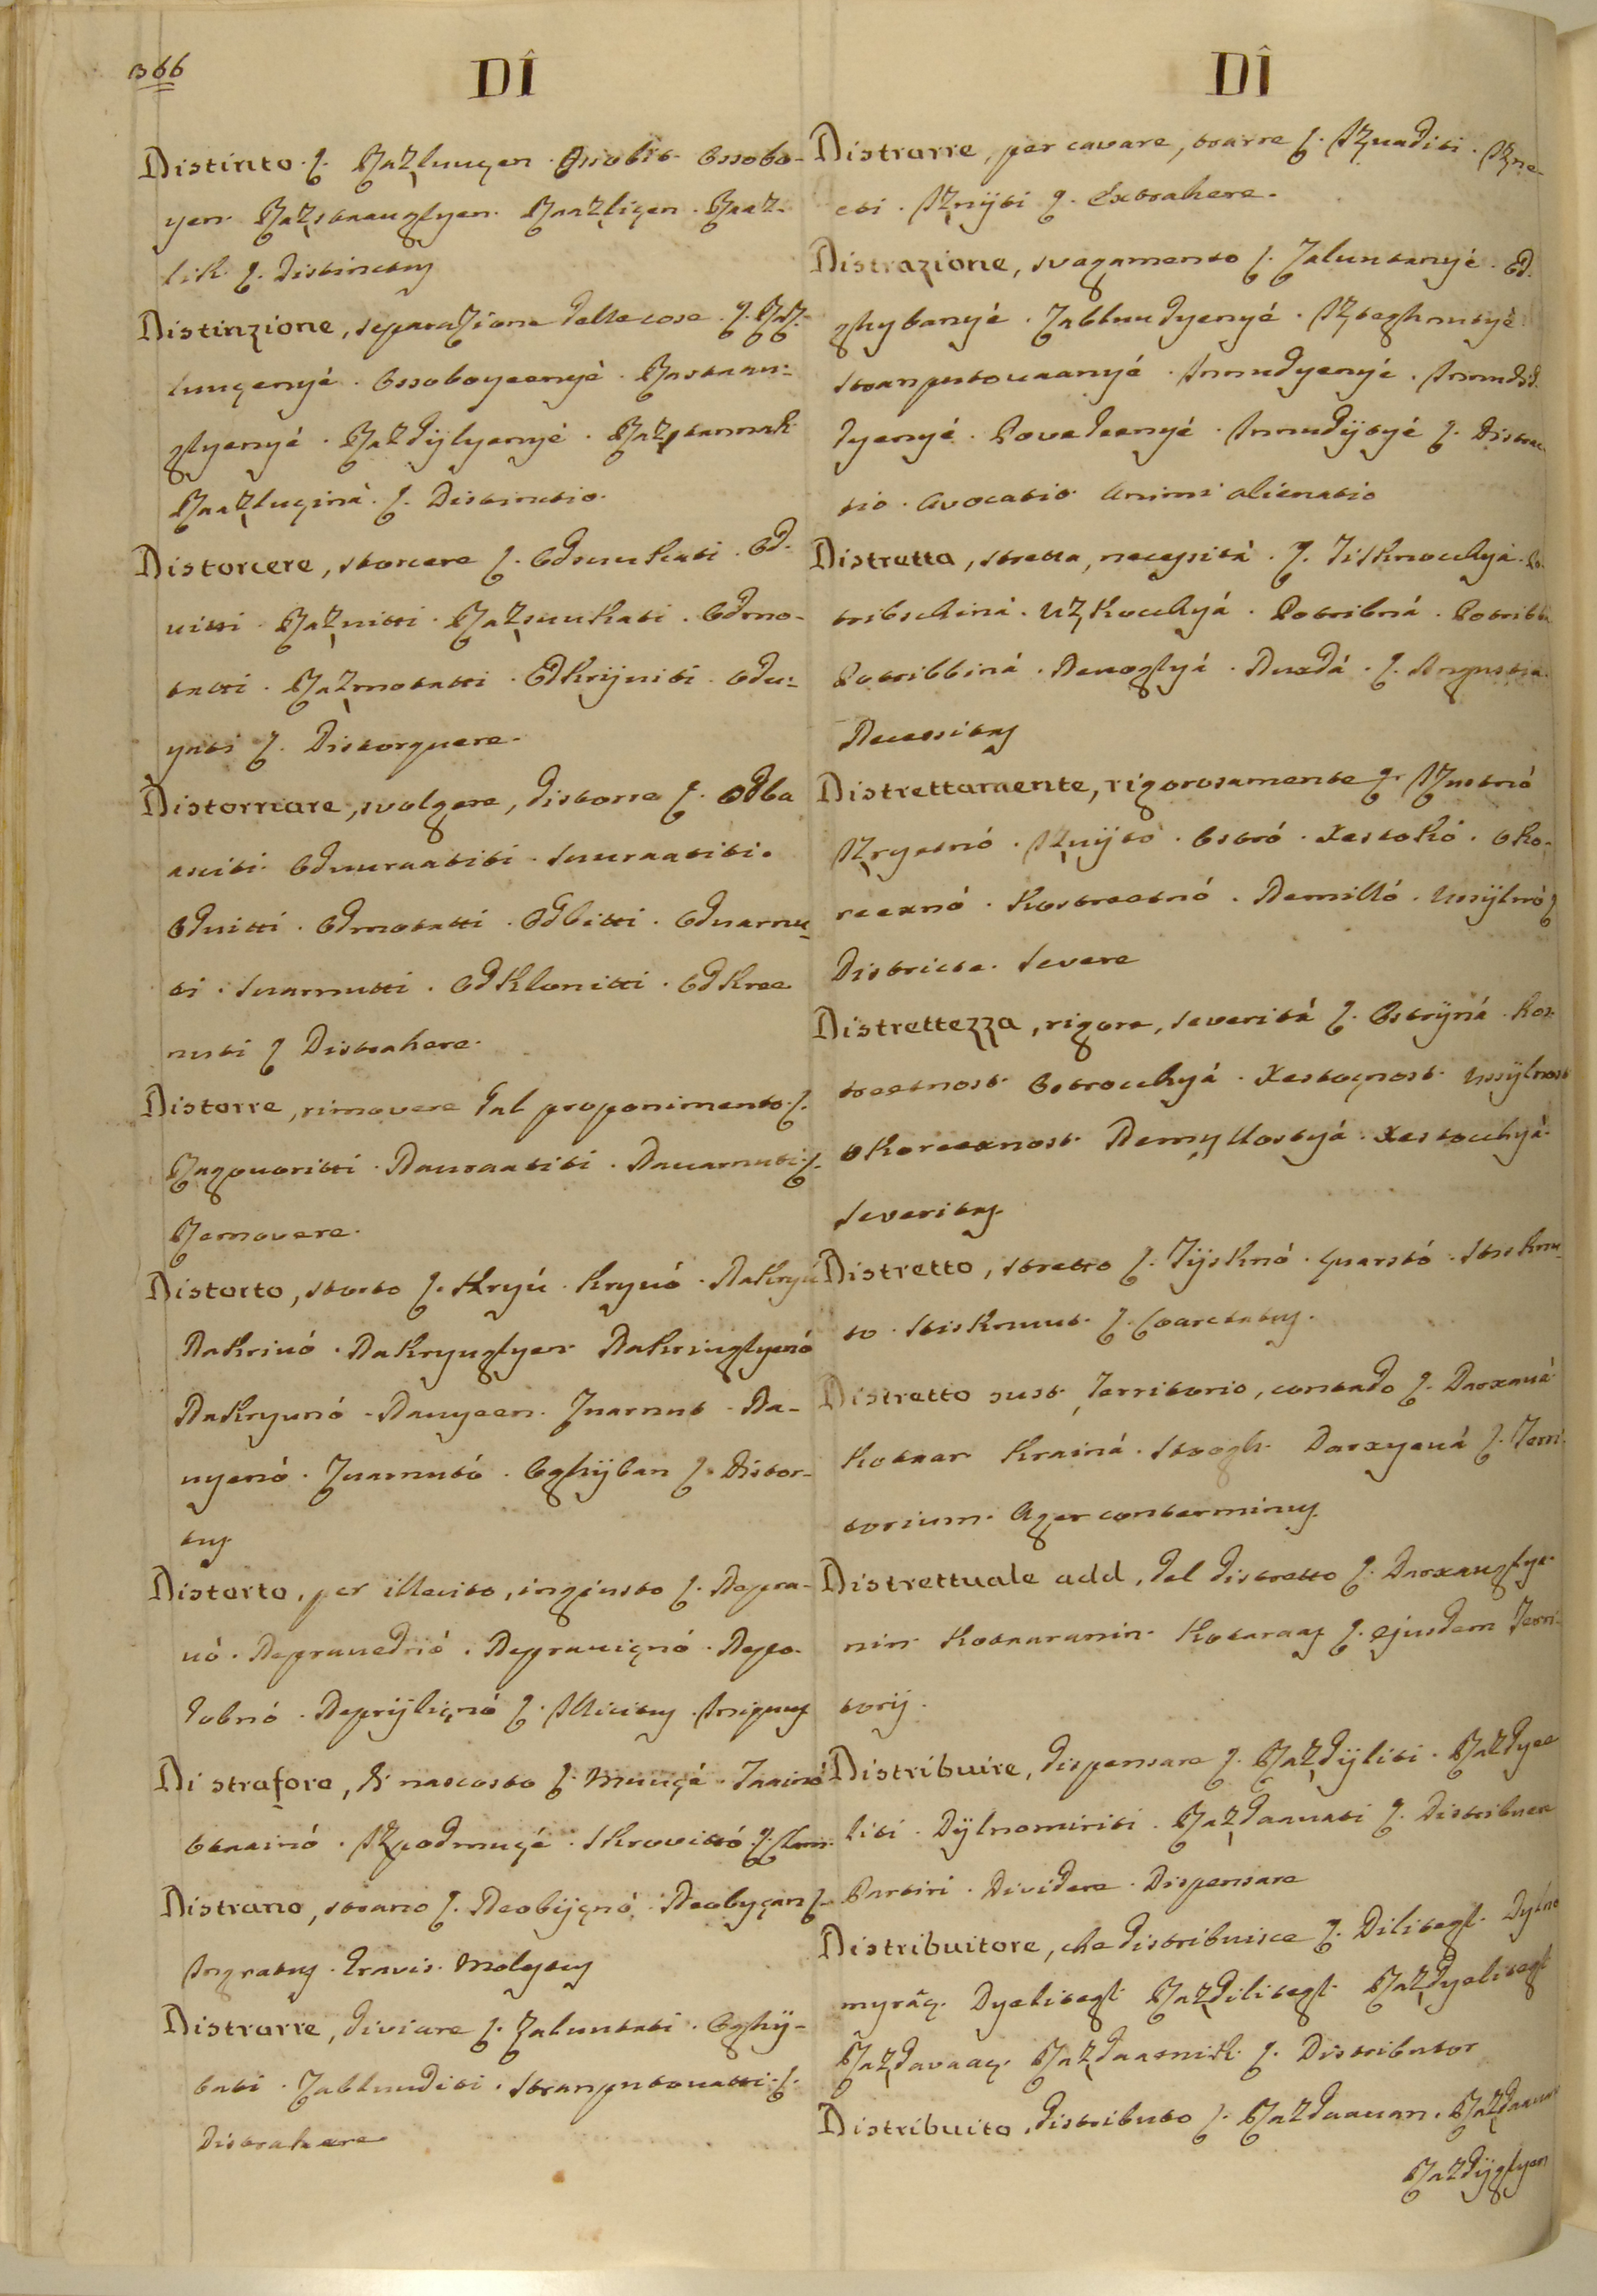 366
DÎ
Distinto. ſ. Razluuçen. Ossobit. Ossobo-
yen. Razstaauglyen. Raazliçen. Raaz-
lik. ſ. Distinctus
Distinzione, separazione delle cose. ſ. Raz-
luuçenyé. Ossoboyeenyè. Rastaau-
glyenyé. Razdijlyenyé. Razstannak
Raazluçinà. ſ. Distinctio.
Distorcere, storcere ſ. Odsuukati. Od-
uitti. Razuitti. Razsuukati. Odmo-
tatti. Razmotatti. Odkrijuiti. Odu-
ynti ſ. Distorquere.
Distornare, svolgere, distorre ſ. Odba
auiti. Oduuraatiti. Suuraatiti.
Oduitti. Odmotatti. Odbitti. Oduarnu-
ti. Suarnutti. Odklonitti. Odkree
nuti ſ Distrahere.
Distorre, rimovere dal proponimento. ſ.
Razgouoritti. Nauraatiti. Nauarnuti. ſ.
Removere.
Distorto, storto ſ. Skryú. Kryuó. Nakryú
Nakriuó. Nakryuglyen. Nakriuglyenó
Nakryunó. Nauyeen. Zuarnut. Na-
uyenó. Zuarnutó. Oghijban ſ. Distor-
tus
Distorto, per illecito, ingiusto ſ. Nepra-
uó. Neprauednó. Neprauiçnó. Nepo-
dobnó. Neprijliçnó ſ. Illicitus. Iniquus
Di straforo, di nascosto ſ. Muuçé. Taainó
Otaainó. Izpodmuçé. Skrovittó. ſ. Clam.
Distrano, strano ſ. Neobijçnó. Neobyçan ſ.
Ingratus. Gravis. Molestus
Distrarre, diviare ſ. Zaluntati. Oghij-
bati. Zabluuditi. Stranputouatti. ſ.
Distrahere
DÎ
Distrarre, per cavare, trarre ſ. Izuaditi. Izne-
eti. Iznijti ſ. Extrahere.
Distrazione, svagamento ſ. Zaluntanyé. Od-
ghybanyé. Zabluudyenyé. Izteghnutyé
Stranputouaanyé. Smudyenyé.
dyenyé. Povedeenyé. Smudijtyé ſ. Distrac-
tio. Avocatio. Animi alienatio
Distretta, stretta, necessità. ſ. Tisknochyá.
tribschiná. Uzkochyá. Potribná.
Potribbiná. Nevoglyá. Nuxdá. ſ. Angustia.
Necessitas
Distrettamente, rigorosamente ſ. Izustnó
Izryetnó. Iznijto. Ostró. Xestokó. Oko-
reexnó. Kostreetnó. Nemilló. Ussijlnó ſ
Districte. Severe
Distrettezza, rigore, severità ſ. Ostrijná. Kos-
treetnost. Ostrochyá. Xestoçnost. Ussijlnost
Okoreexnost. Nemyllostyá. Xestochyá.
Severitas.
Distretto, stretto ſ. Tijsknó. Çuarstó. Stisknu-
to. Stisknuut. ſ. Coarctatus.
Distretto sust. Territorio, contado ſ. Darxauá
Kotaar. Krainá. Stogh. Darxyeuá ſ. Terri-
torium. Ager conterminus.
Distrettuale add, del distretto ſ. Darxauglya-
nin. Kotaaranin. Kotaraaz ſ. ejusdem Terri-
torij.
Distribuire, dispensare ſ. Razdijliti. Razdyee
liti. Dijlnomiriti. Razdaauati ſ. Distribuere
Partiri. Dividere. Dispensare
Distribuitore, che distribuisce ſ. Dilitegl. Dylno
myráç. Dyelitegl. Razdilitegl. Razdyelitegl
Razdavaaç. Razdaaunik. ſ. Distributor
Distribuito, distributo ſ. Razdaauan. Razdaaun
Razdijglyen